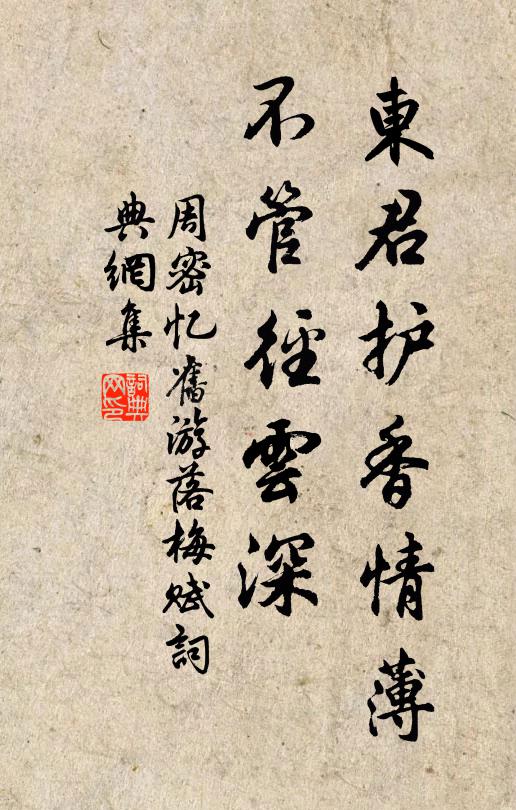 東君护香情薄
不管徑雲深
周密忆舊游落梅赋詞
典網集
詞典网印